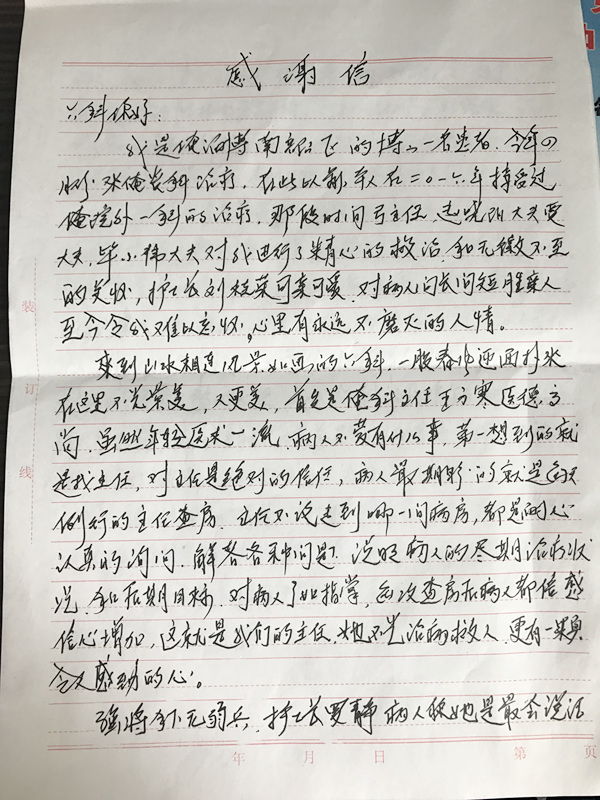 感谢信
六科你好:
我是淄博南 的 一名患者.今年
科治疗.在此以前,本人在二〇一六年接受过
院外一科的治疗.那段时间弓主任、赵 大夫
大夫.毕小伟大夫对我进行了精心的救治.和无微不至
的关怀,护士长刘桂荣可亲可爱.对病人问长问短胜亲人
至今令我难以忘怀.心里有永远不磨灭的人情。
来到山水相连风景如画的六科.一股春风迎面扑来
在这里不光景美,人更美,首先是俺科主任王 寒医德高
尚.虽然年轻医术一流.病人不管有什么事,第一想到的就
是找主任,对主任是绝对的信任,病人最期盼的就是每天
例行的主任查房.主任不论走到哪一间病房,都是耐心
认真的询问.解答各种问题.说明病人的 期治疗状
况.和后期目标.对病人了如指掌,每次查房后病人都倍感
信心增加,这就是我们的主任.她不光治病救人.更有一颗
令人感动的心。
强将手下无弱兵,护士长 静病人称她是最会说话
装
订
线
年 月 日 第 页